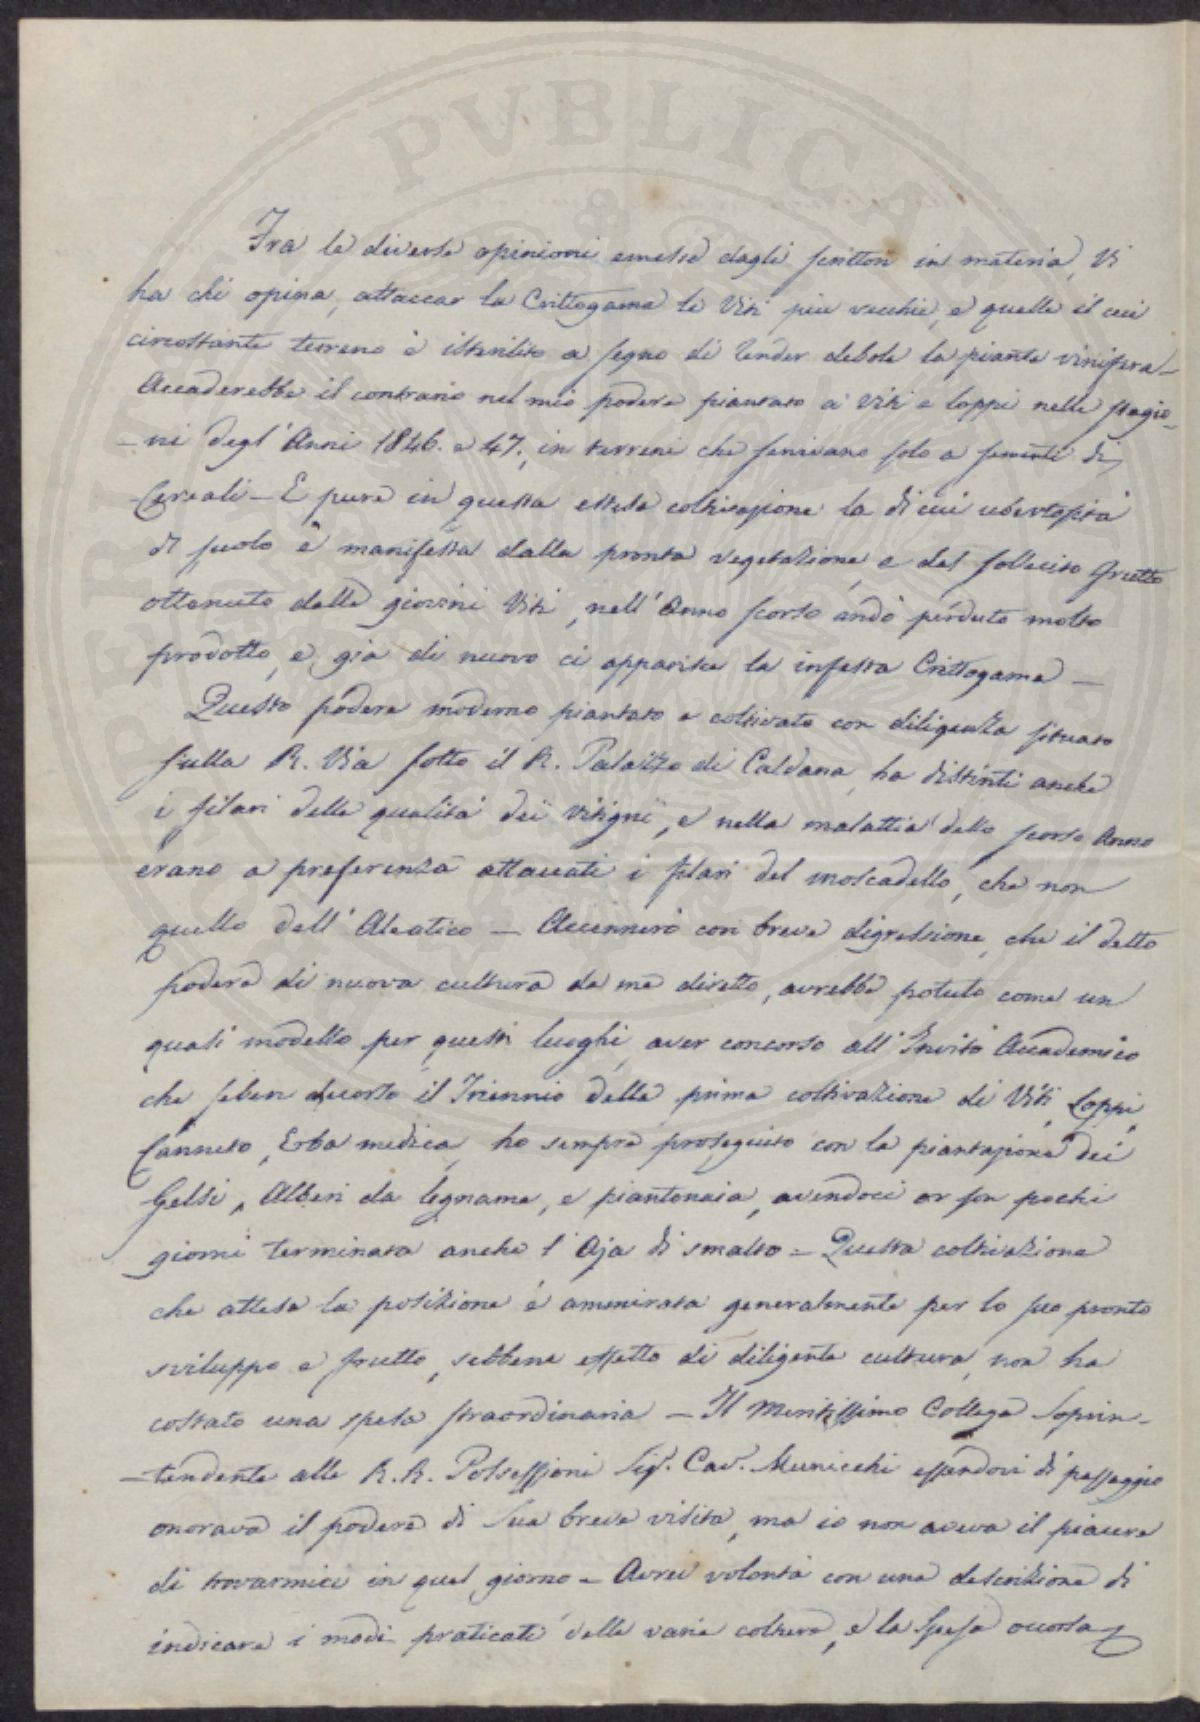 PVBLICAE
Fra le diverse opinioni emesse dagli scrittori in materia, Vi
ha chi opina, attaccar la Crittogama le Viti più vecchie, e quelle il cui
circostante terreno è isterilito a segno di render debole la pianta vinifera –
Accaderebbe il contrario nel mio podere piantato a Viti e loppi nelle stagio-
- ni degl'Anni 1846. e 47., in terreni che servivano solo a sementi di
Cereali – E pure in questa estesa coltivazione la di cui ubertosità
di suolo è manifesta dalla pronta vegetazione, e dal sollecito frutto
ottenuto dalle giovini Viti, nell'Anno scorso andò perduto molto
prodotto, e già di nuovo ci apparisce la infesta Crittogama –
Questo podere moderno piantato e coltivato con diligenza situato
sulla R. Via sotto il R. Palazzo di Caldana, ha distinti anche
i filari delle qualità dei vitigni, e nella malattia dello scorso Anno
erano a preferenza attaccati i filari del moscadello, che non
quello dell'Aleatico – Accennerò con breve digressione, che il detto
podere di nuova cultura da me diretto, avrebbe potuto come un
quasi modello per questi luoghi, aver concorso all'Invito Accademico
che seben decorso il Triennio della prima coltivazione di Viti, Loppi,
Canneto, Erba medica, ho sempre proseguito con la piantagione dei
Gelsi, Alberi da legname, e piantonaia, avendoci or son pochi
giorni terminata anche l'Aja di smalto = Questa coltivazione
che attesa la posizione è ammirata generalmente per lo suo pronto
sviluppo e frutto, sebbene effetto di diligente cultura, non ha
costato una spesa straordinaria – Il Meritissimo Collega Soprin-
- tendente alle R. R. Possessioni Sig.r Cav.r Municchi essendovi di passaggio
onorava il podere di Sua breve visita, ma io non aveva il piacere
di trovarmici in quel giorno – Avrei volontà con una descrizione di
indicare i modi praticati delle varie colture, e la Spesa occorsa